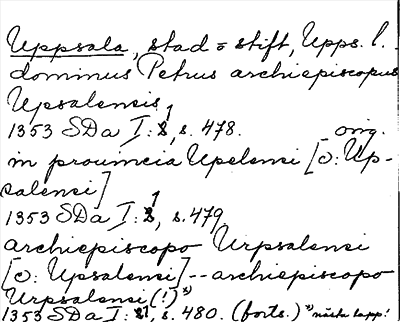 Uppsala, stad o stift, Upps. l.
dominus Petrus archiepiscopus
Upsalensis
1353 SDa I:1, s. 478. orig.
in prouincia Upelensi [ɔ: Up-
salensi]
1353 SDa I:1, s. 479
archiepiscopo Urpsalensi
[ɔ: Upsalensi] -- archiepiscopo
Urpsalensi (!) *)
1353 SDa I:1, s. 480. (forts.) *) nästa lapp!